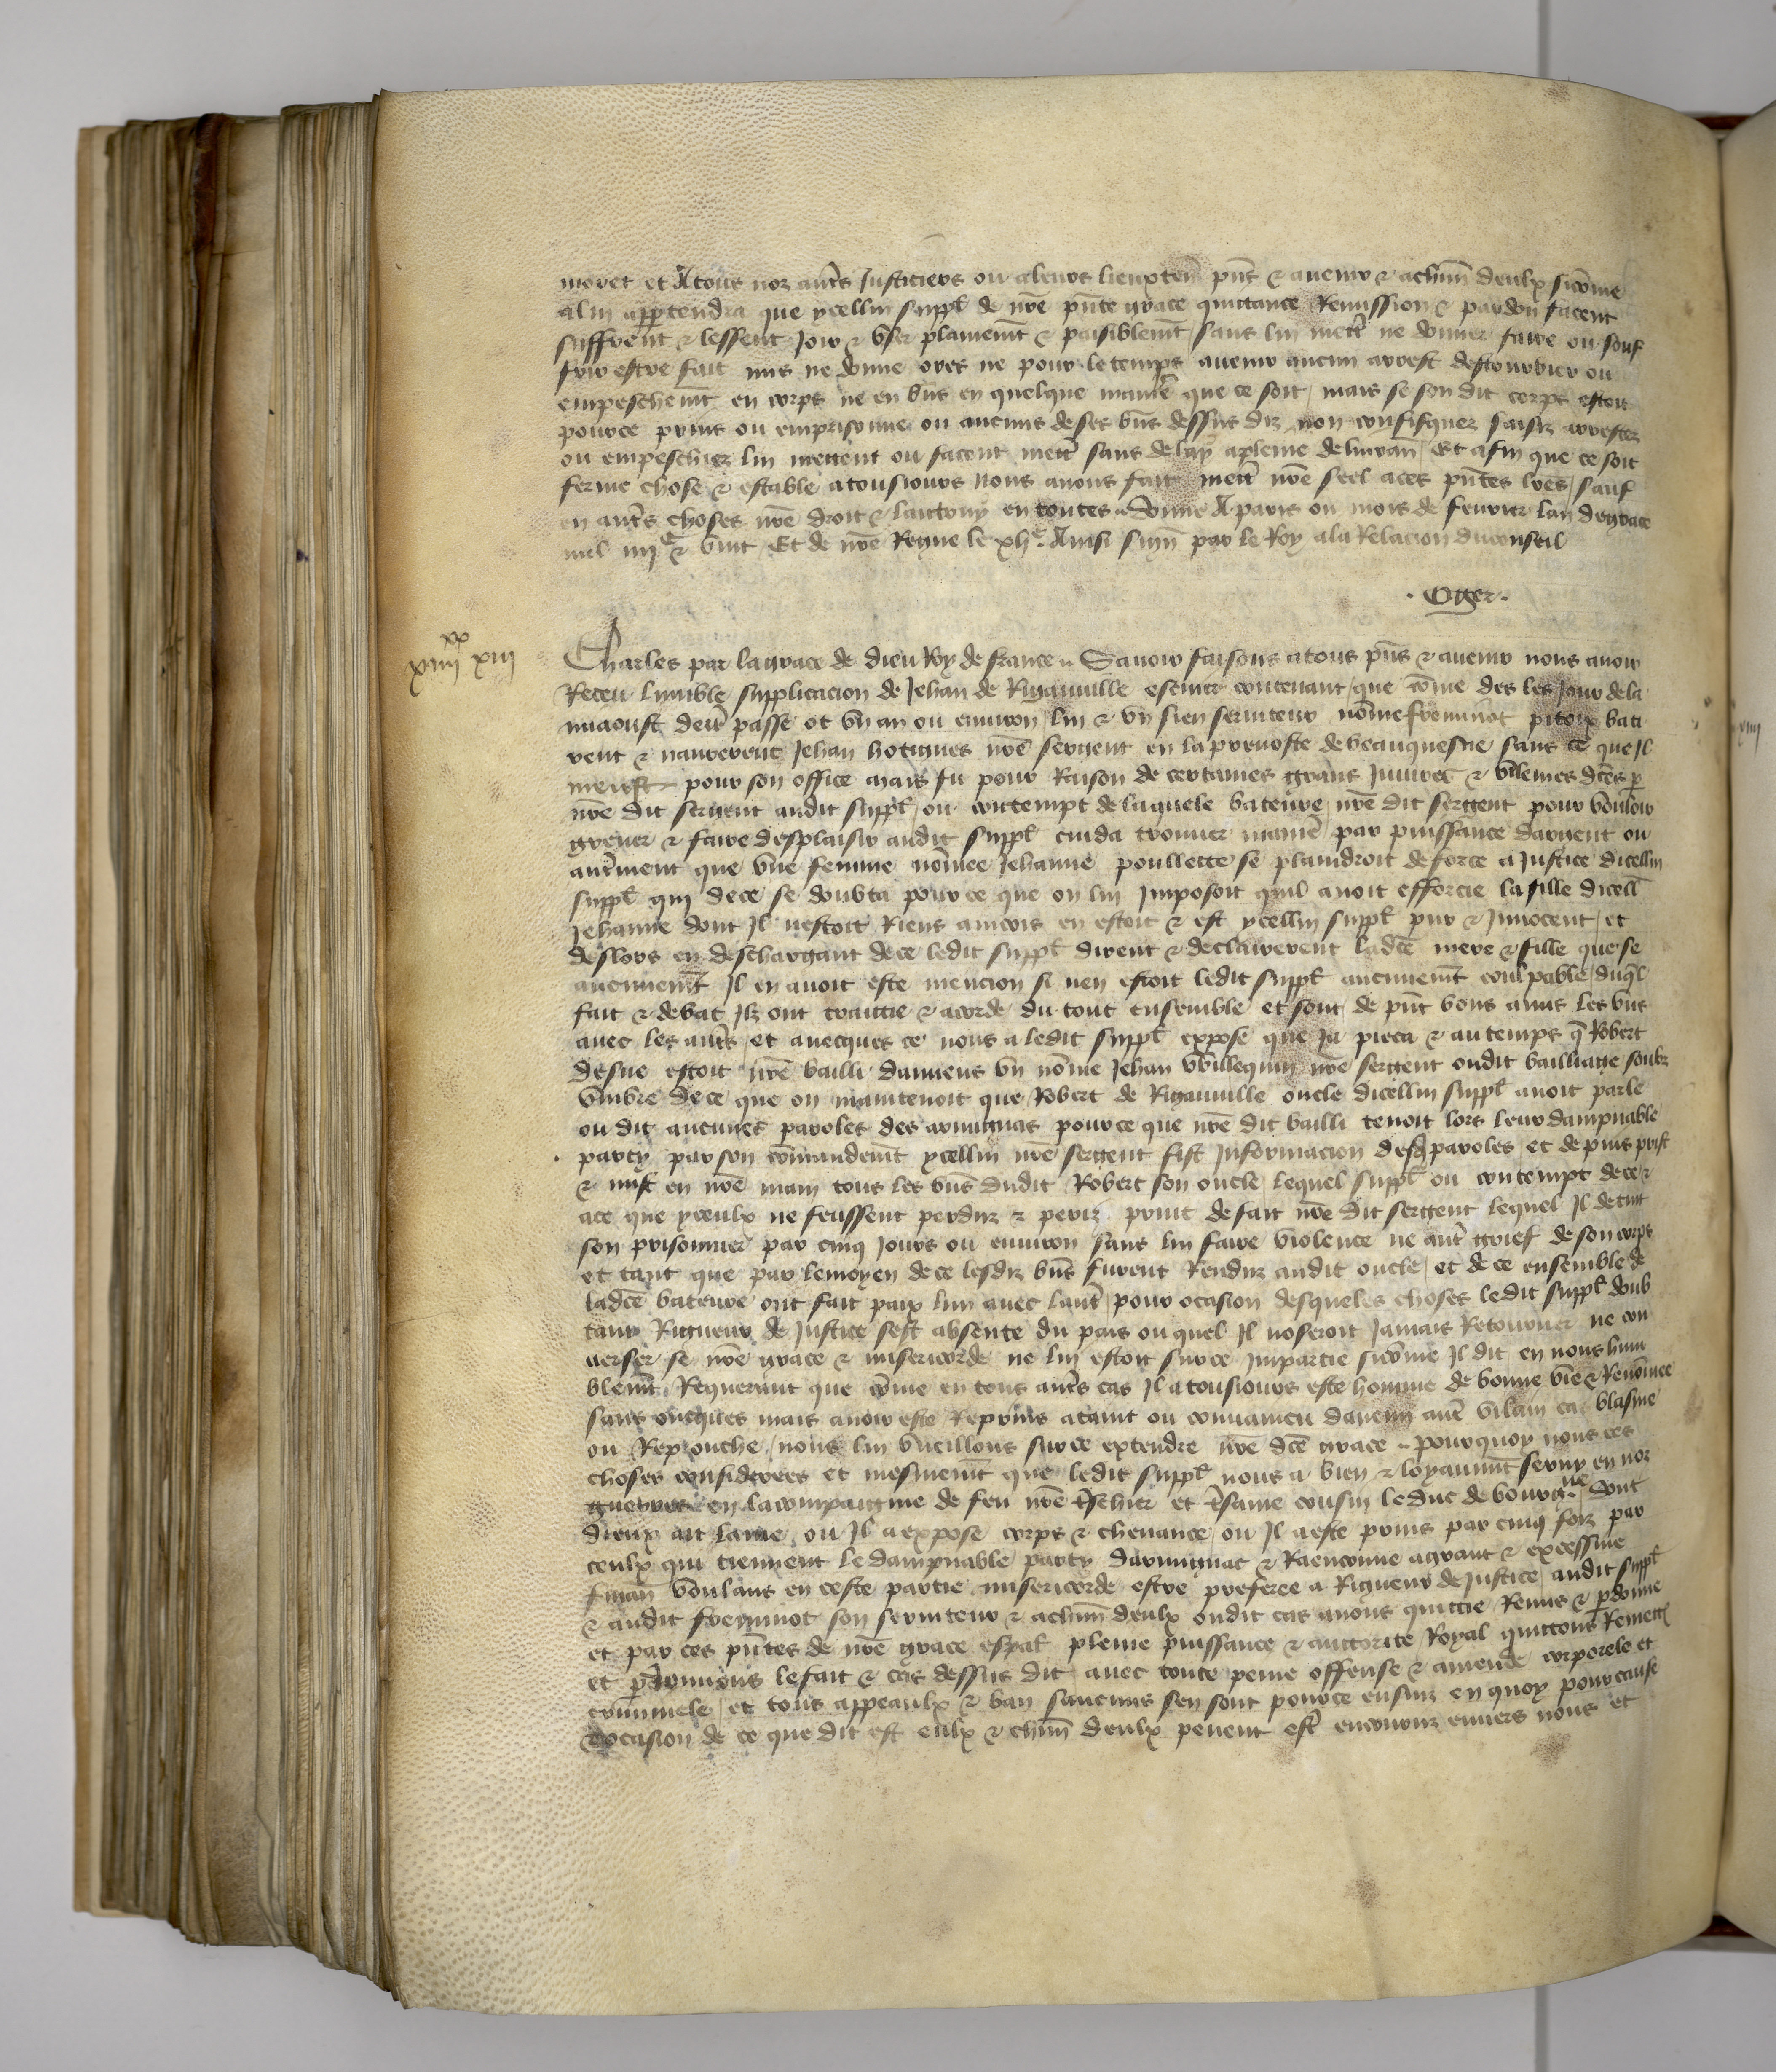 moret et A tous noz aut͛s Justiciers ou a leurs lieuxten̄ p̄ns & auenir & a ch͞un deulx sicōme
a lui app̱tendra que ycellui suppł de nr̄e p̄nte grace quittance Remission & pardon facent
suffrent & lessent Joir & vser plainem̄t & paisiblem̄t sans lui mettr̄ ne donner faire ou souf
frir estre fait mis ne donne ores ne pour le temps auenir aucun arrest destourbier ou
empeschem̄t en corps ne en biēs en quelque manier̄ que ce soit / mais se son dit corps estoit
pource prins ou emprisonne ou aucuns de ses biēs dessus diz non confisquez saisiz arrestez
ou empeschiez lui mettent ou facent mettr̄ sans delay a pleine deliuran̄ / Et afin que ce soit
ferme chose & estable a tousiours Nous auons fait mettr̄ nr̄e seel a ces p̄ntes l͞res / sauf
en aut͛s choses nr̄e droit & lautruy en toutes Donne A paris ou mois de feurier lan de grace
mil iiijᶜ & vint / Et de nr̄e Regne le xljᵉ. Ainsi sign̄ par le Roy a la Relacion du conseil
. Oger .
xx
xiiij xiij
Charles par la grace de dieu Roy de france Sauoir faisons a tous p̄ns & auenir nous auoir
Receu lumble supplicacion de Jehan de Rigauuille escuier contenant / que cōme des les Jour de la
miaoust dern̄ passe ot vn an ou enuiron / lui & vn sien seruiteur nōme freminot pitoux bati
rent & naurerent Jehan hotignes nr̄e sergent en la preuoste de beauquesne sans ce que Il
meist pour son office mais fu pour Raison de certaines grans Iniures & villenies d͞ces p̱
nr̄e dit sergent audit suppł / ou contempt de laquele bateure nr̄e dit sergent pour vouloir
greuer & faire desplaisir audit suppł cuida trouuer manier̄ par puissance dargent ou
autr̄ment que vne femme nōmee Jehanne poullette se plaindroit de force a Justice dicellui
suppł qui de ce se doubta pource que on lui Imposoit quil auoit efforcie la fille dicell̄
Jehanne dont Il nestoit Riens aincois en estoit & est ycellui suppł pur & Innocent / et
deslors en deschargant de ce ledit suppł dirent & declairerent lad͞ce mere & fille que se
aucunem̄t Il en auoit este mencion si nen estoit ledit suppł aucunem̄t coulpable / duq̄l
fait & debat Ilz ont traittie & acorde du tout ensemble et sont de p̄nt bons amis les vns
auec les aut͛s / et auecques ce nous a ledit suppł expose que Ja pieca & au temps q̄ Robert
desne estoit nr̄e bailli damiens vn nōme Jehan Willequin nr̄e sergent oudit bailliage soubz
vmbre de ce que on maintenoit que Robert de Rigauuille oncle dicellui suppł auoit parle
ou dit aucunes paroles des armignas pource que nr̄e dit bailli tenoit lors leur dampnable
party par son cōmandem̄t ycellui nr̄e sergent fist Informacion desd͞ paroles / et depuis prist
& mist en nr̄e main tous les biēs dudit Robert son oncle / lequel suppł ou contempt de ce &
a ce que yceulx ne feussent perduz & periz print de fait nr̄e dit sergent lequel Il detint
son prisonnier par cinq Jours ou enuiron sans lui faire violence ne autr̄ grief de son corps
et tant que par le moyen de ce lesdiz biēs furent Renduz audit oncle / et de ce ensemble de
lad͞ce bateure ont fait paix lun auec lautr̄ / pour ocasion desqueles choses ledit suppł doub
tant Rigueur de Justice sest absente du pais ou quel Il noseroit Jamais Retourner ne con
uerser se nr̄e grace & misericorde ne lui estoit sur ce Impartie sicōme Il dit en nous hum
blem̄t Requerant que cōme en tous aut͛s cas Il a tousiours este homme de bonne vie & Renōmee
sans oncques mais auoir este Reprins ataint ou conuaincu daucun autr̄ vilain cas blasme
ou Reprouche / nous lui vueillons sur ce extendre nr̄e d͞ce grace Pourquoy nous ces
choses considerees et mesmem̄t que ledit suppł nous a bien & loyaum̄t seruy en noz
guerres en la compaignie de feu nr̄e t͛schier et t͛same cousin le duc de bourg̱ⁿᵉ / dont
dieux ait lame ou Il a expose corps & cheuance / ou Il a este prins par cinq foiz par
ceulx qui tiennent le dampnable party darmignac & Raenconne a grant & excessiue
finan̄ voulans en ceste partie misericorde estre preferee a Rigueur de Justice / audit suppł
& audit freminot son seruiteur & a ch͞un deulx oudit cas auons quittie Remis & p̱donne
et par ces p̄ntes de nr̄e grace esp̄al pleine puissance & auctorite Royal quittons Remett͛
et p̱donnons le fait & cas dessus dit auec toute peine offense & amende corporele et
criminele / et tous appeaulx & ban saucuns sen sont pource ensuiz en quoy pour cause
& ocasion de ce que dit est eulx & ch͞un deulx peuent estr̄ encouruz enuers nous et